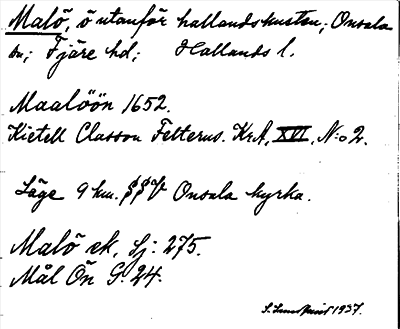 Malö, ö utanför hallandskusten; Onsala
sn; Fjäre hd; Hallands l.
Maalöön 1652.
Kietell Classon Felterus. KrA, XVI, N:o 2.
Läge 9 km. SSV Onsala kyrka.
Malö sk. Sj: 275.
Mål Ön G. 24.
S. Lundkvist 1937.